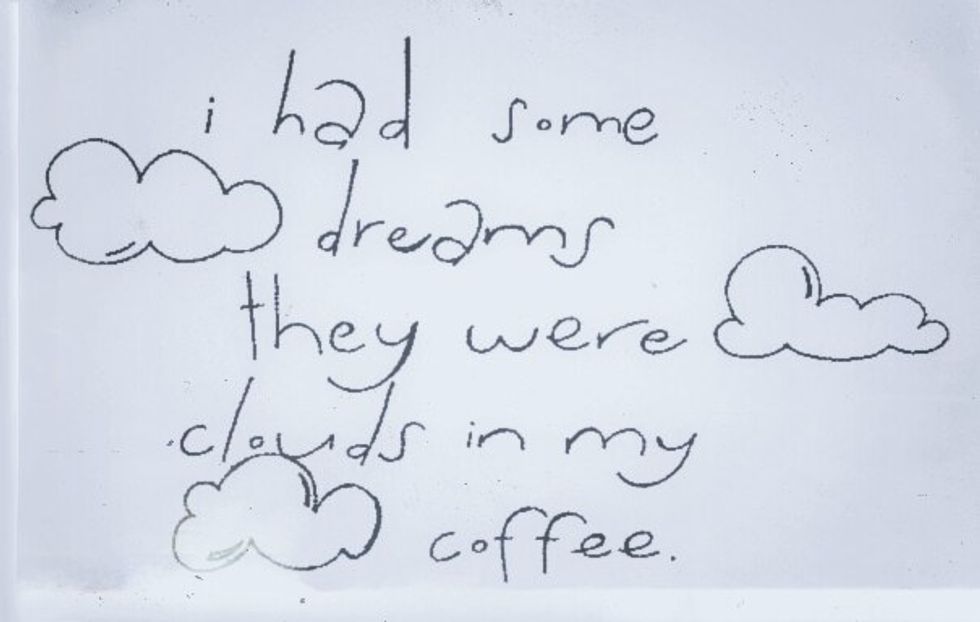 i had some
dreams
they were
clouds in my
coffee.